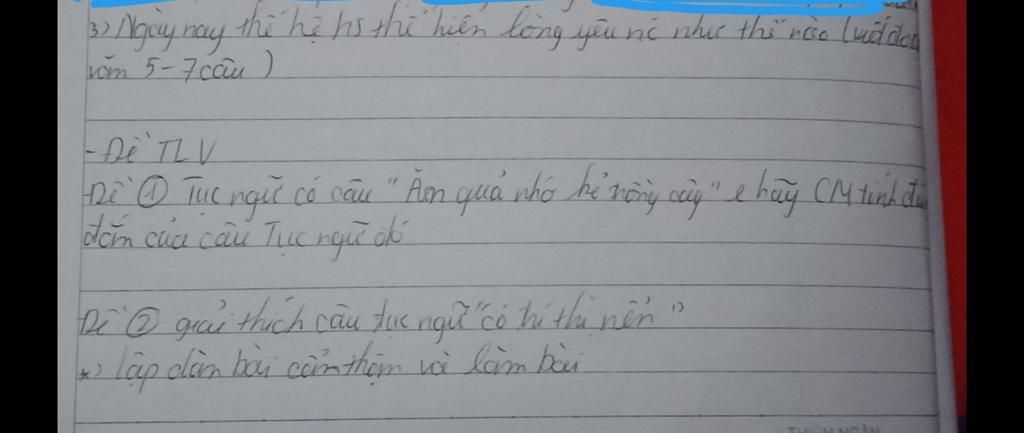 3) Ngày nay thế hệ hs thể hiện lòng yêu nc như thế nào (viết đoạn
văn 5-7 câu)
- Đề TLV
Đề ① Tục ngữ có câu "Ăn quả nhớ kẻ trồng cây" e hãy CM tính đú
đắn của câu Tục ngữ đó
Đề ② giải thích câu tục ngữ "có chí thì nên"
*) lập dàn bài cẩn thận và làm bài
THIÊN NGÂN